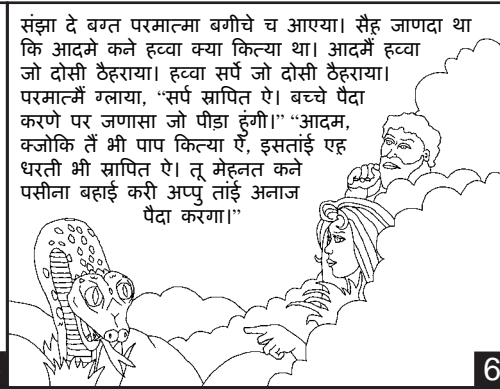 संझा दे बग्त परमात्मा बगीचे च आएया। सैह़ जाणदा था
कि आदमे कने हव्वा क्या कित्या था। आदमैं हव्वा
जो दोसी ठैहराया। हव्वा सर्पे जो दोसी ठैहराया।
परमात्मैं ग्लाया, “सर्प स्रापित ऐ। बच्चे पैदा
करणे पर जणासा जो पीड़ा हुंगी।” “आदम,
क्जोकि तैं भी पाप कित्या ऐ, इसतांई एह़
धरती भी स्रापित ऐ। तू मेहनत कने
पसीना बहाई करी अप्पु तांई अनाज
पैदा करगा।”
6